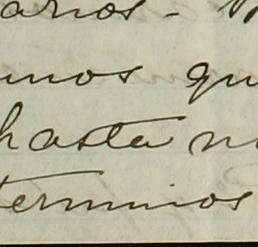 arios -
mos qu
hasta n
terminos